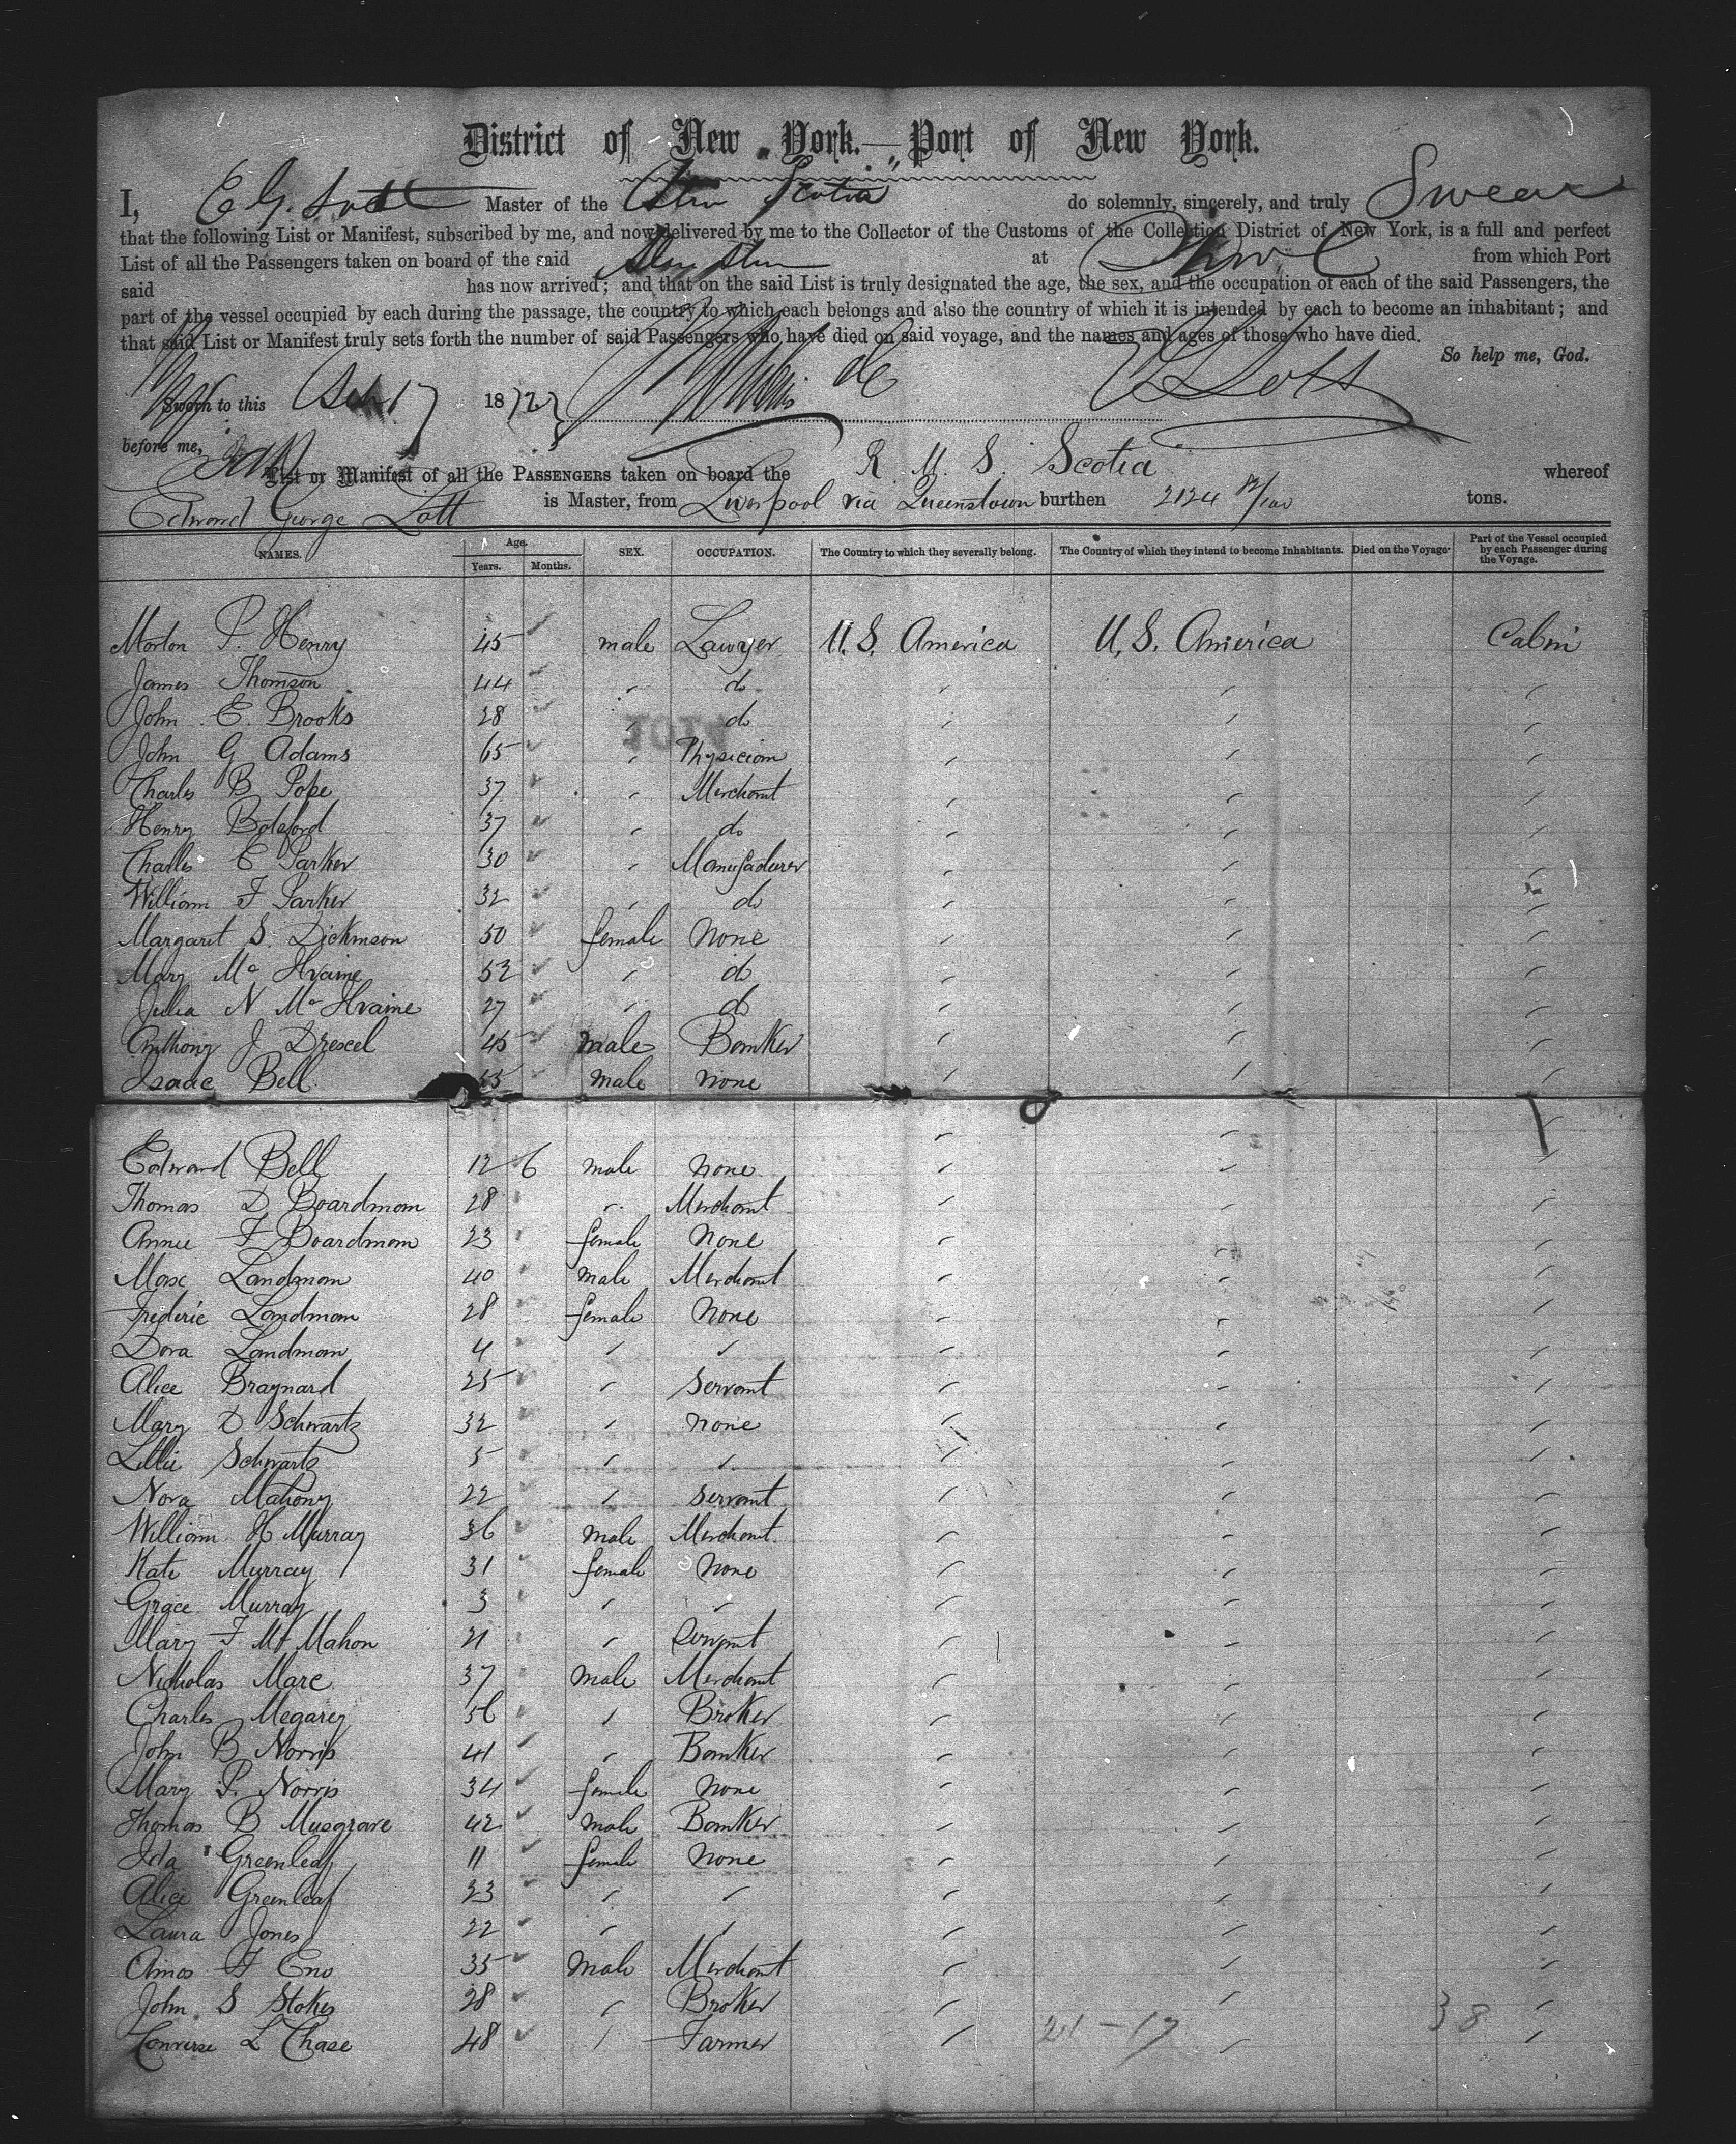 District of New York.—Port of New York.
I, E G. Lott Master of the Str Scotia do solemnly, sincerely, and truly Swear
that the following List or Manifest, subscribed by me, and now delivered by me to the Collector of the Customs of the Collection District of New York, is a full and perfect
List of all the Passengers taken on board of the said at from which Port
said has now arrived; and that on the said List is truly designated the age, the sex, and the occupation of each of the said Passengers, the
part of the vessel occupied by each during the passage, the country to which each belongs and also the country of which it is intended by each to become an inhabitant; and
that said List or Manifest truly sets forth the number of said Passengers who have died on said voyage, and the names and ages of those who have died.
So help me, God.
Sworn to this 17 1872 E G Lott
before me,
List or Manifest of all the PASSENGERS taken on board the R. M. S. Scotia whereof
Edward George Lott is Master, from Liverpool via Queenstown burthen 2124 12/100 tons.
NAMES. Age. Years. Months. SEX. OCCUPATION. The Country to which they severally belong. The Country of which they intend to become Inhabitants. Died on the Voyage. Part of the Vessel occupied by each Passenger during the Voyage.
Morton P. Henry 45 male Lawyer U. S. America U. S. America Cabin
James Thomson 44 " do " " "
John E. Brooks 28 " do " " "
John G Adams 65 " Physician " " "
Charles B Pope 37 " Merchant " " "
Henry Botsford 37 " do " " "
Charles E Parker 30 " Manufacturer " " "
William F Parker 32 " do " " "
Margaret S. Dickinson 50 female None " " "
Mary Mc Ilvaine 52 " do " " "
Julia N Mc Ilvaine 27 " do " " "
Anthony J Drexel 45 male Banker " " "
Isaac Bell male none " " "
Edward Bell 12 6 male none " " "
Thomas D Boardman 28 " Merchant " " "
Annie F Boardman 23 female None " " "
Max Landman 40 male Merchant " " "
Frederic Landman 28 female None " " "
Dora Landman 4 " " " " "
Alice Braynard 25 " Servant " " "
Mary D Schwartz 32 " none " " "
Lillie Schwartz 5 " " " " "
Nora Mahony 22 " Servant " " "
William H Murray 36 male Merchant " " "
Kate Murray 31 female None " " "
Grace Murray 3 " " " " "
Mary F Mc Mahon 21 " Servant " " "
Nicholas Marc 37 male Merchant " " "
Charles Megarey 56 " Broker " " "
John B Norris 41 " Banker " " "
Mary P. Norris 34 female None " " "
Thomas B Musgrave 42 male Banker " " "
Ida Greenleaf 11 female None " " "
Alice Greenleaf 23 " " " " "
Laura Jones 22 " " " " "
Amos F Eno 35 male Merchant " " "
John S Stokes 28 " Broker " " "
Converse L Chase 48 " Farmer " " "
21 - 17 38